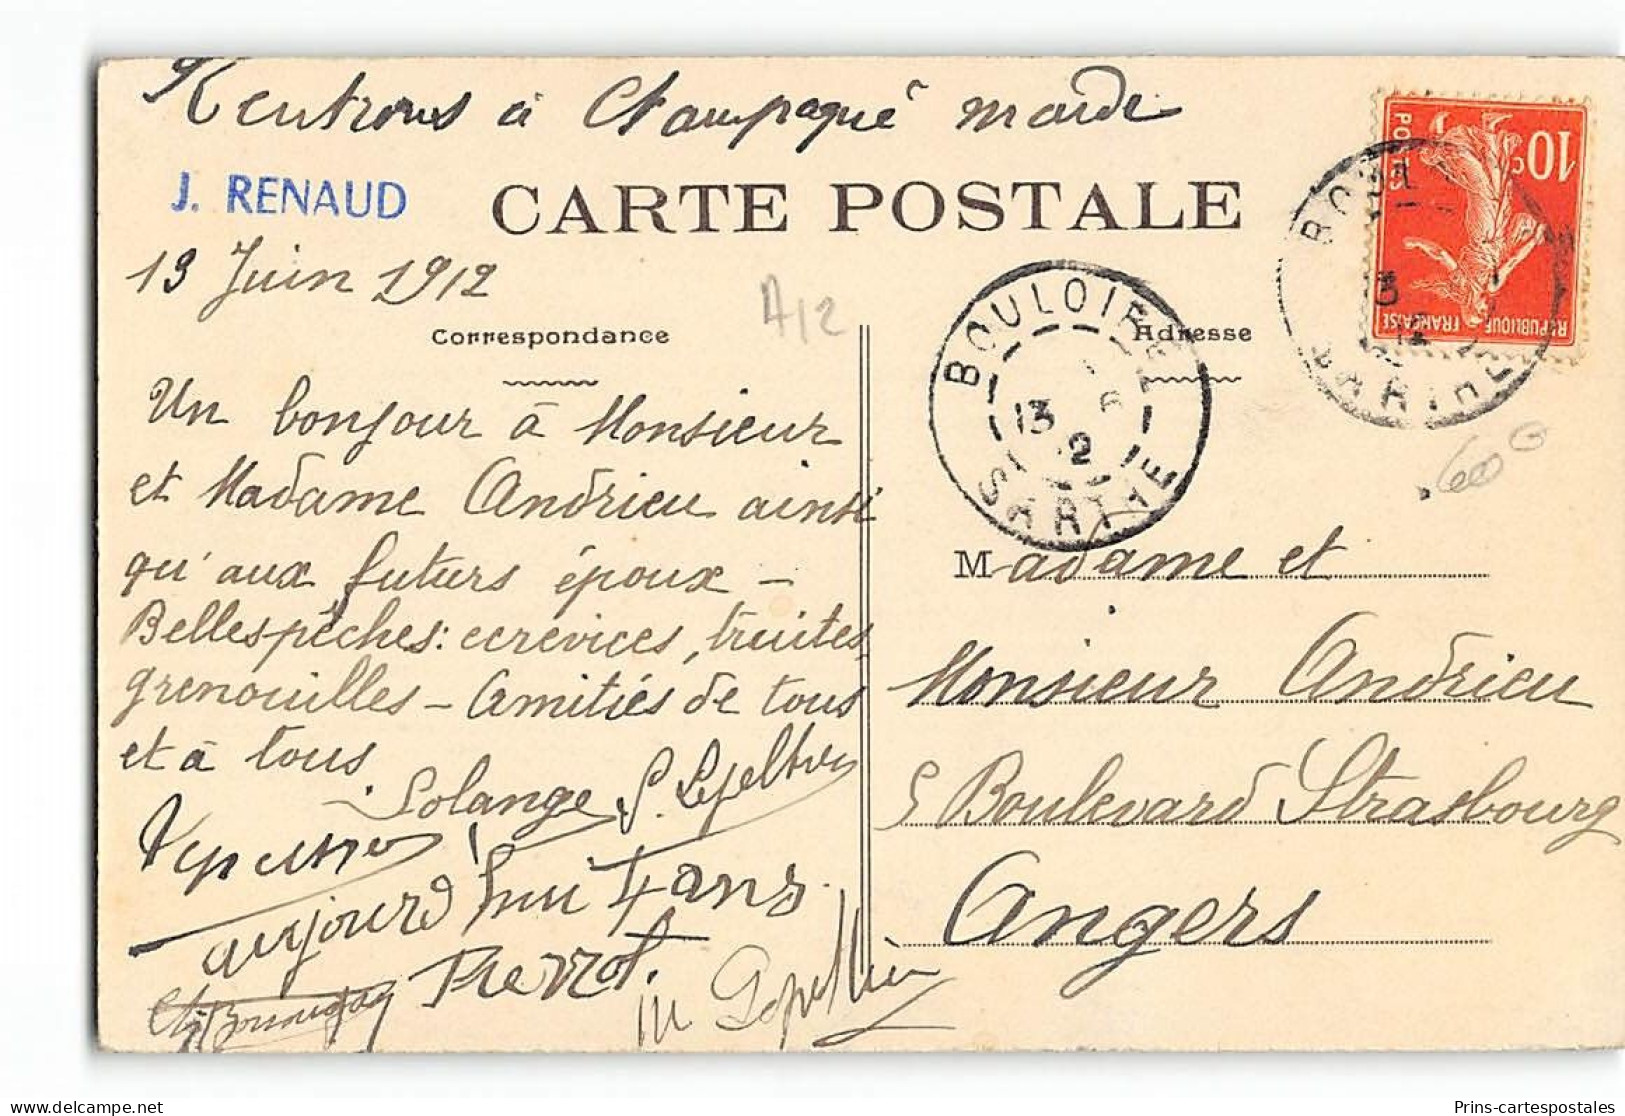 Rentrons à Champagné mardi
J. RENAUD
CARTE POSTALE
13 Juin 1912
A/2
Correspondance
Adresse
Un bonjour à Monsieur
et Madame Andrieu ainsi
qu'aux futurs époux -
Belles pêches: ecrevices, truites,
grenouilles - Amitiés de tous
et à tous
Solange S. Lepeltier
aujourd'hui 4 ans
Pierrot.
M
BOULOIRE
13
SARTHE
10c
POSTES
REPUBLIQUE FRANÇAISE
BOUL
13
12
SARTHE
Madame et
Monsieur Andrieu
5 Boulevard Strasbourg
Angers
Prins-cartespostales.com